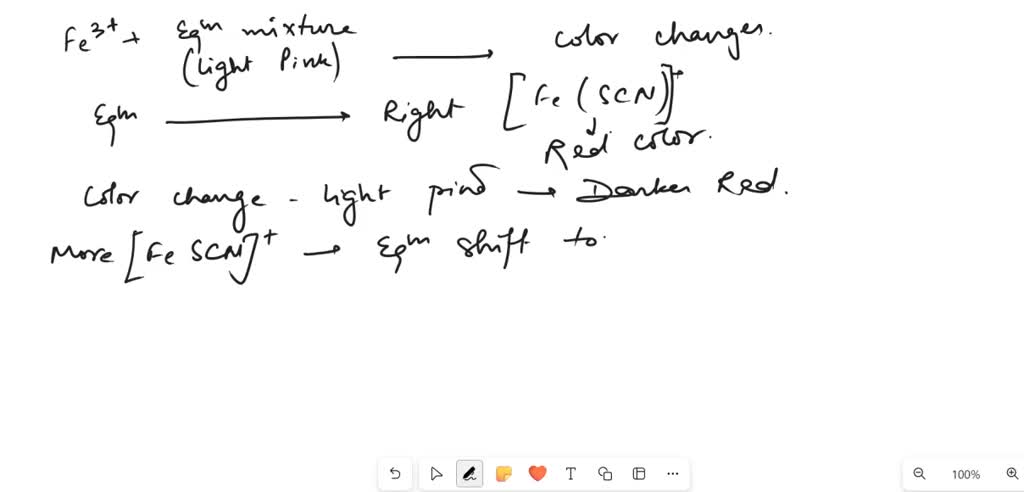 Fe³⁺ + Eqm mixture ⟶ color changes.
(light Pink)
Eqm ⟶ Right [Fe(SCN)]⁺
↓
Red color.
Color change - light pink → Darker Red.
More [Fe SCN]⁺ → Eqm shift to
T
100%